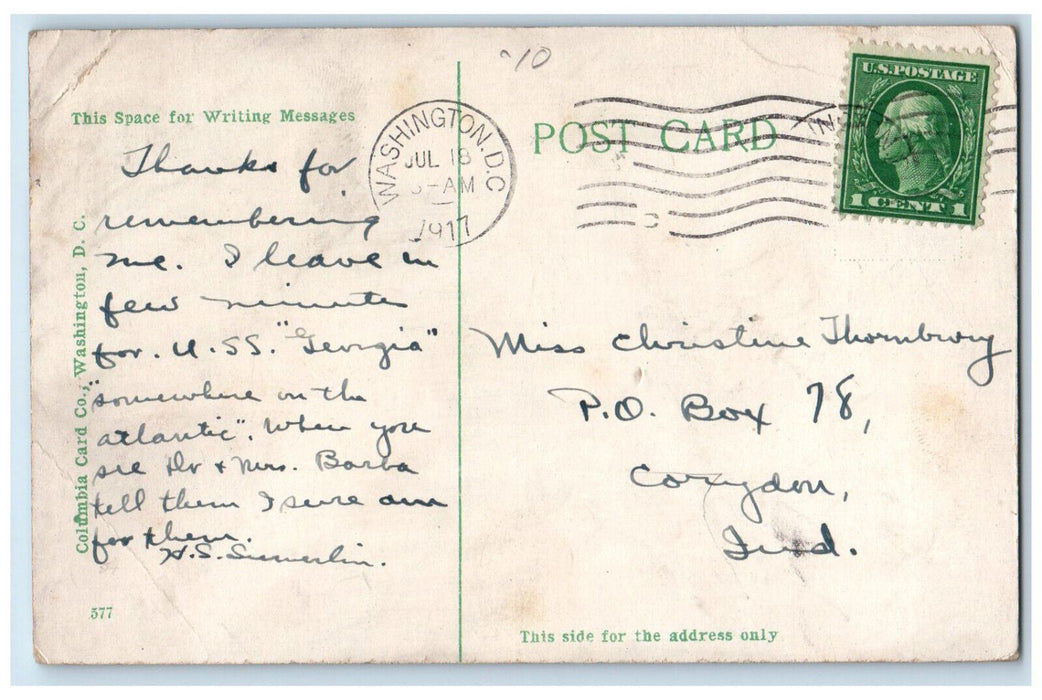 10
This Space for Writing Messages
Thanks for
remembering
me. I leave in
few minutes
for. U.SS. "Georgia"
"somewhere on the
atlantic". When you
see Dr + Mrs. Barba
tell them I sure am
for them.
H.S.
Columbia Card Co., Washington, D. C.
577
WASHINGTON, D.C.
JUL 18
AM
1917
POST CARD
U.S. POSTAGE
1 CENT 1
Miss Christine Thornbury
P.O. Box 78,
Corydon,
Ind.
This side for the address only